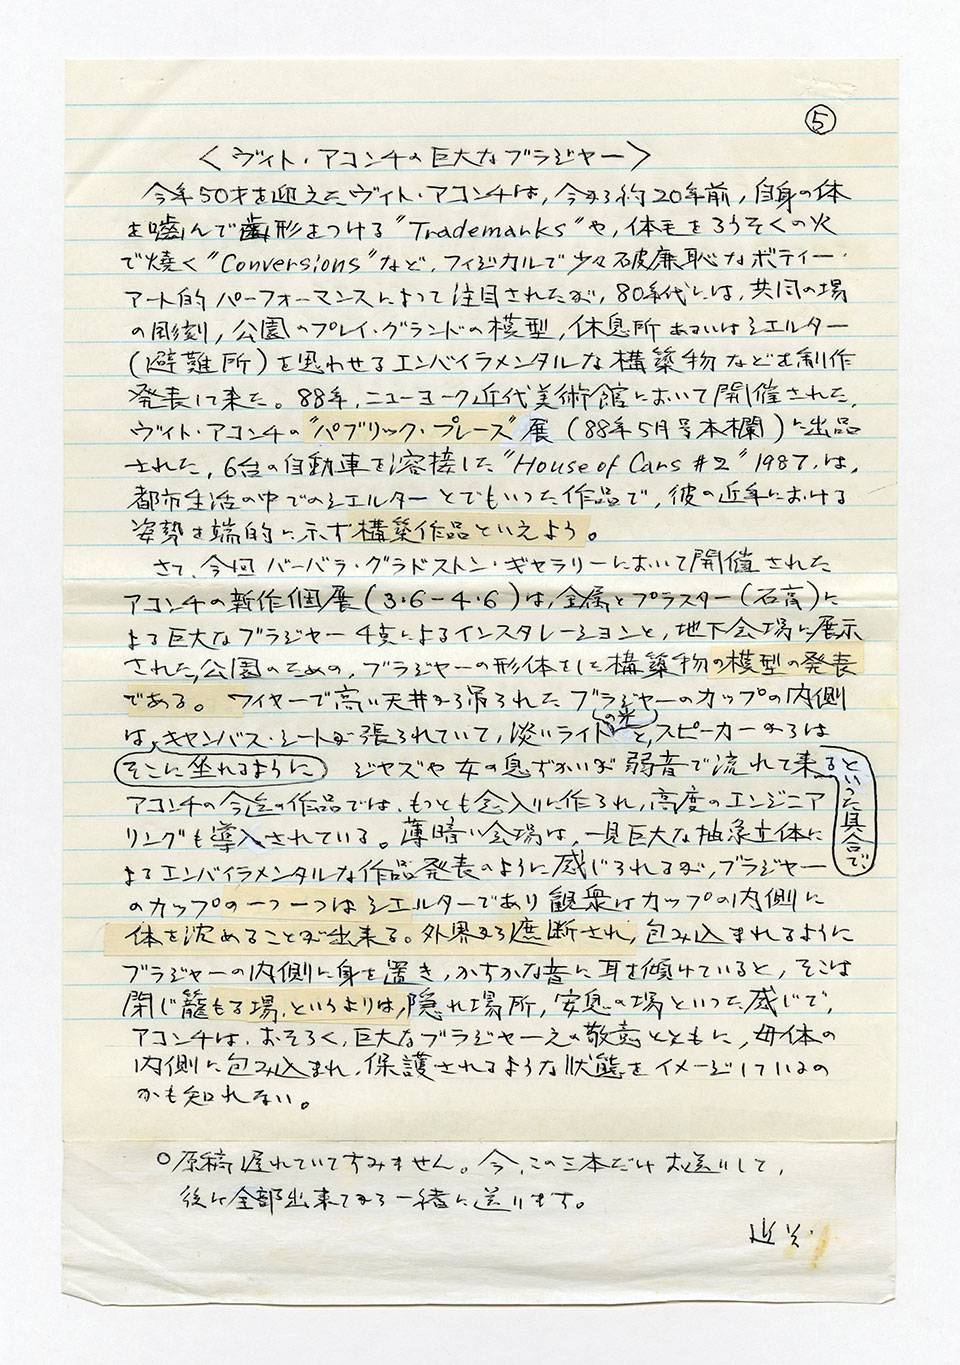 ⑤
〈ヴィト・アコンチの巨大なブラジャー〉
今年50才を迎えたヴィト・アコンチは，今から約20年前，自身の体
を噛んで歯形をつける"Trademarks"や，体毛をろうそくの火
で焼く"Conversions"など，フィジカルで少々破廉恥なボディー・
アート的パーフォーマンスによって注目されたが，80年代には，共同の場
の彫刻，公園のプレイ・グランドの模型，休息所あるいはシエルター
（避難所）を思わせるエンバイラメンタルな構築物などを制作
発表して来た。88年，ニューヨーク近代美術館において開催された，
ヴィト・アコンチの"パブリック・プレース"展（88年5月号本欄）に出品
された，6台の自動車を溶接した"House of Cars #2"1987，は，
都市生活の中でのシエルターとでもいった作品で，彼の近年における
姿勢を端的に示す構築作品といえよう。
さて，今回バーバラ・グラドストン・ギャラリーにおいて開催された
アコンチの新作個展（3・6－4・6）は，金属とプラスター（石膏）に
よる巨大なブラジャー4点によるインスタレーションと，地下会場に展示
された，公園のための，ブラジャーの形体をした構築物の模型の発表
である。ワイヤーで高い天井から吊られたブラジャーのカップの内側
は，キャンバス・シートが張られていて，淡いライトの光と，スピーカーからは
そこに坐れるように ジャズや女の息ずかいが弱音で流れて来るといった具合で，
アコンチの今迄の作品では，もっとも念入りに作られ，高度のエンジニア
リングも導入されている。薄暗い会場は，一見巨大な抽象立体に
よるエンバイラメンタルな作品発表のように感じられるが，ブラジャー
のカップの一つ一つはシエルターであり観衆はカップの内側に
体を沈めることが出来る。外界から遮断され，包み込まれるように
ブラジャーの内側に身を置き，かすかな音に耳を傾けていると，そこは
閉じ籠もる場，というよりは，隠れ場所，安息の場といった感じで，
アコンチは，おそらく，巨大なブラジャーえの敬意とともに，母体の
内側に包み込まれ，保護されるような状態をイメージしているの
かも知れない。
○原稿遅れていてすみません。今，この三本だけお送りして，
後は全部出来てから一緒に送ります。